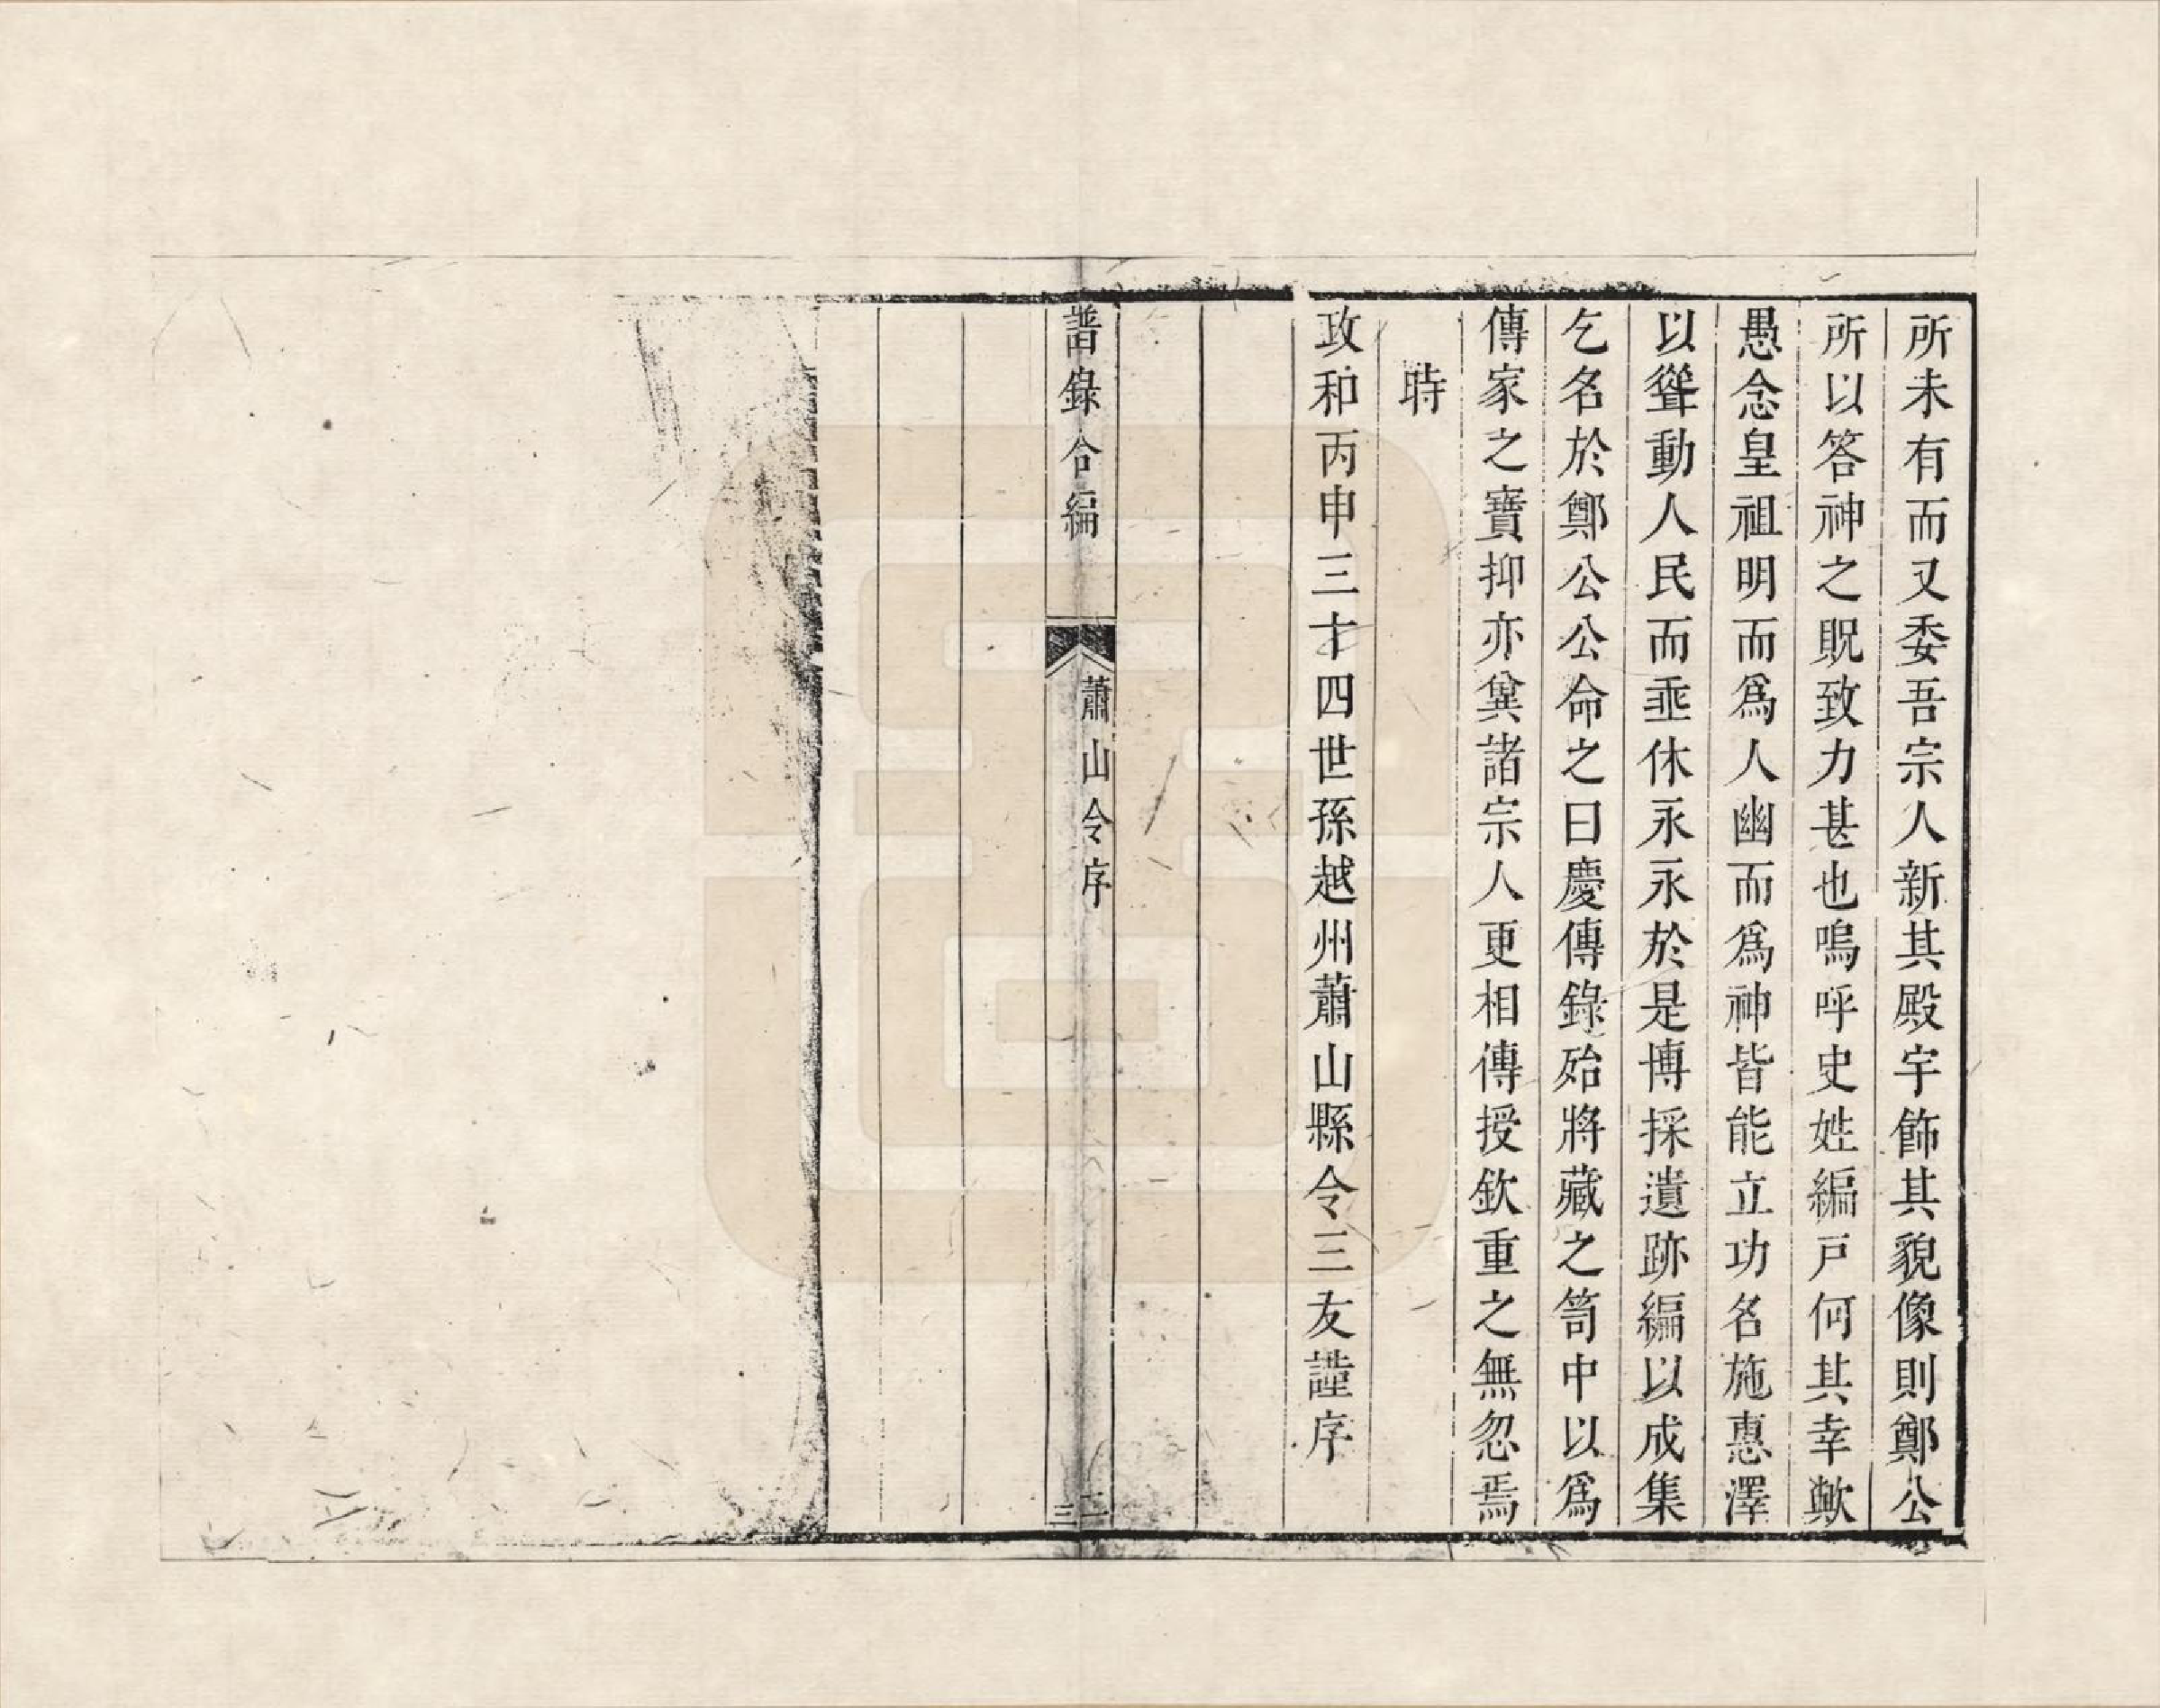 所未有而又委吾宗人新其殿宇飾其貌像則鄭公
所以答神之貺致力甚也嗚呼史姓編戸何其幸歟
愚念皇祖明而爲人幽而爲神皆能立功名施惠澤
以聳動人民而垂休永永於是博採遺跡編以成集
乞名於鄭公公命之曰慶傳錄殆將藏之笥中以爲
傳家之寶抑亦冀諸宗人更相傳授欽重之無忽焉
時
政和丙申三十四世孫越州蕭山縣令三友謹序
譜錄合編
蕭山令序
二
三